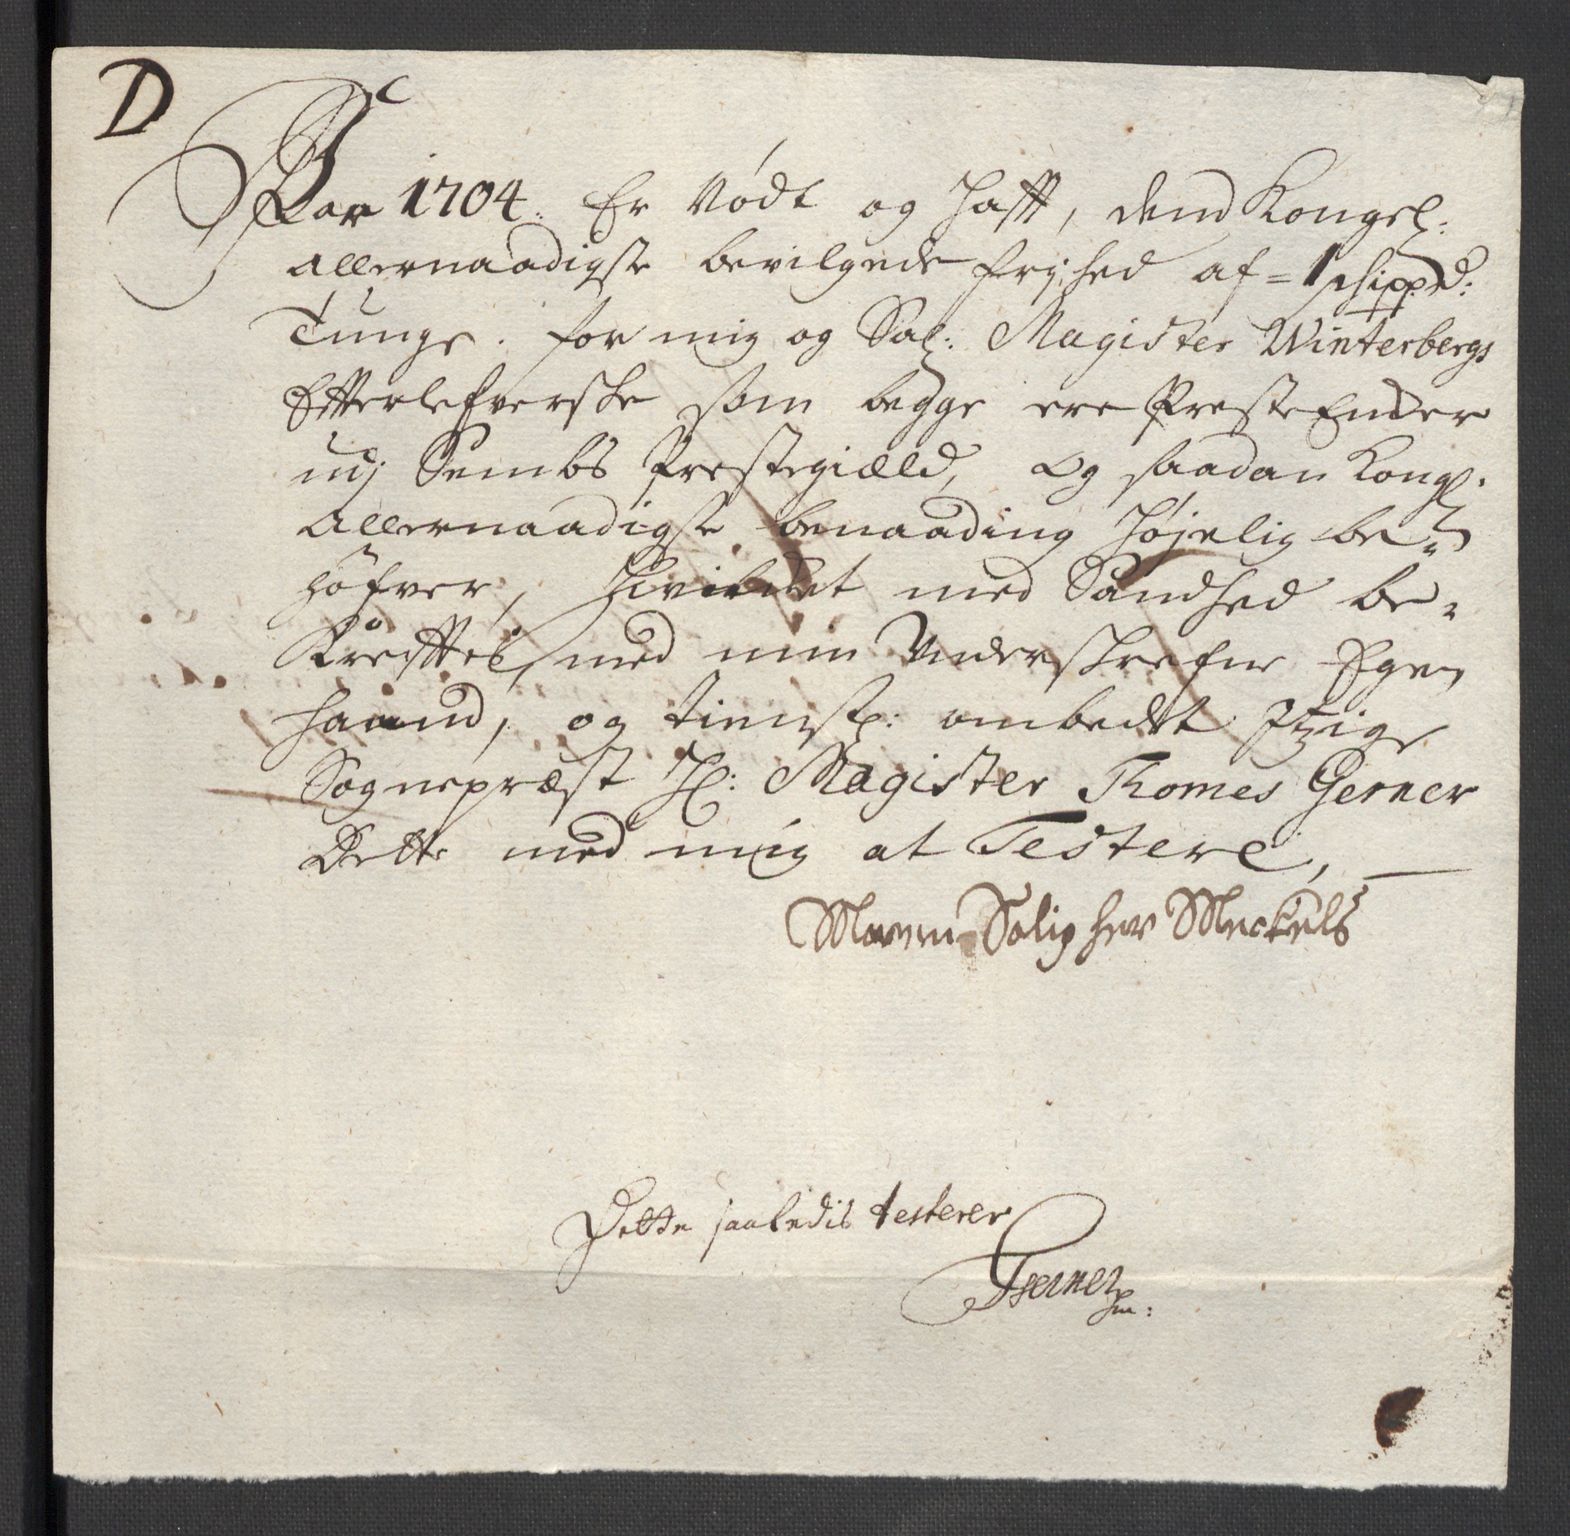 D
Paa Aar 1704. Er Nødt og Hafft, dend Kongel:
allernaadigste bevilgede frjhed af = 1 schippd:
Tunge. for mig og Sal: Magister Winterbergs
Efterlefverske som begge ere Preste Encker
udj Sembs Prestegiæld, og saadan Kongl.
allernaadigste benaading højelig be=
høfver, Hvilcket med Sandhed be=
Kreffttes, med min Underskrefne Egen
haand, og tienstl: ombedet Itzige
Sognepræst Hl: Magister Thomes Gerner
Dette med mig at Testere,
Maren Salig her Meckels
Dette saaledis testerer
TGerner